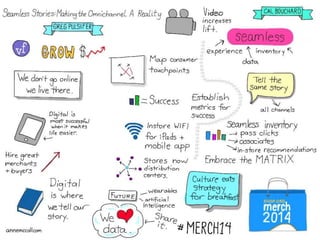 Seamless Stories: Making the Omnichannel A Reality
GREG PULSIFER
GROW $
We don't go online
we live there.
Digital is
most successful
when it makes
life easier.
Hire great
merchants
+ buyers
Digital
is where
we tell our
story.
annemccoll.com
Map consumer
touchpoints
= Success
Instore WIFI
for iPads +
mobile app
Stores now
distribution
centers.
FUTURE
wearables
artificial
intelligence
We
data.
Share
it.
Video
increases
lift.
CAL BOUCHARD
seamless
experience
inventory
data
Tell the
same story
all channels
Establish
metrics for
success
Seamless inventory
pass clicks
associates
In-store recommendations
Embrace the MATRIX
Culture eats
strategy
for breakfast
# MERCH14
merch
2014